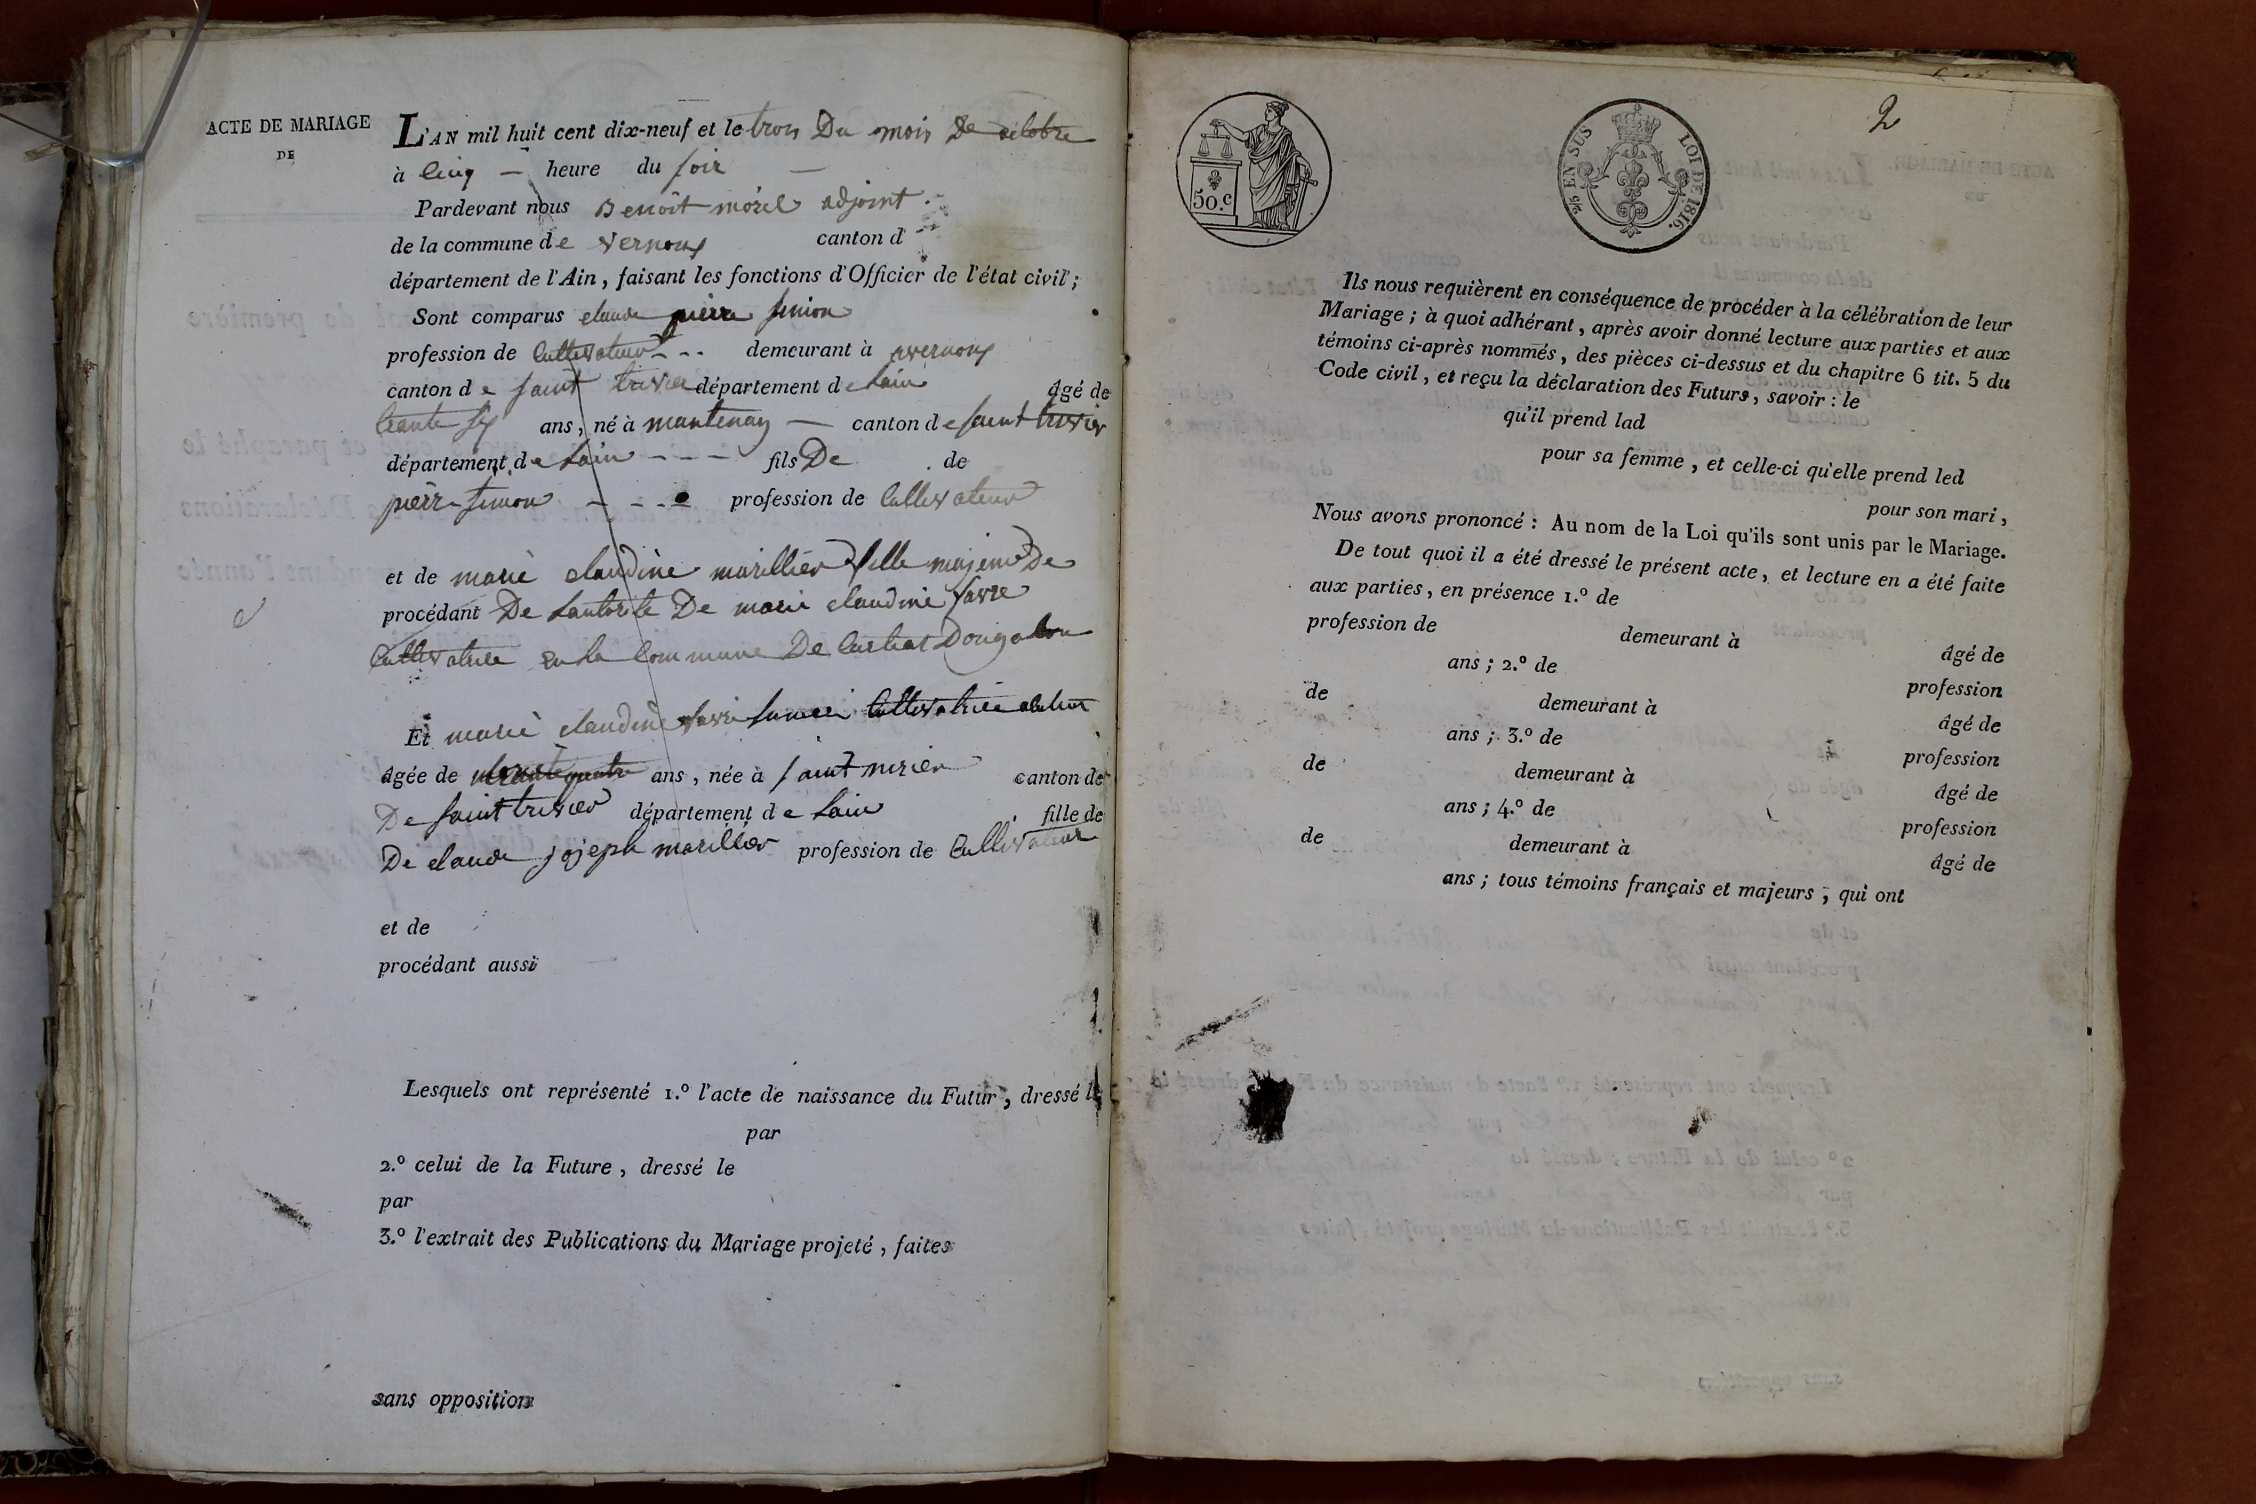 ACTE DE MARIAGE
DE
L'AN mil huit cent dix-neuf et le trois Du mois De octobre
à Cinq heure du soir
Pardevant nous Benoit morel adjoint
de la commune de vernoux canton d
département de l'Ain, faisant les fonctions d'Officier de l'état civil;
Sont comparus claude pierre simon
profession de Cultivateur demeurant à avernoux
canton de saint trivier département de Lain âgé de
trante six ans, né à mantenay canton de saint trivier
département de Lain fils De de
pierre simon profession de Cultivateur
et de marie claudine marillier fille majeure De
procédant De Lautorite De marie claudine favre
Cultivatrice en La Commune De
Et marie claudine favre Cultivatrice
âgée de ans, née à saint nisier canton de
De saint trivier département de Lain fille de
De claude joseph marillier profession de Cultivateur
et de
procédant aussi
Lesquels ont représenté 1.º l'acte de naissance du Futur, dressé le
par
2.º celui de la Future, dressé le
par
3.º l'extrait des Publications du Mariage projeté, faites
sans opposition
2
50.c
2/5 EN SUS LOI DE 1816.
Ils nous requièrent en conséquence de procéder à la célébration de leur
Mariage; à quoi adhérant, après avoir donné lecture aux parties et aux
témoins ci-après nommés, des pièces ci-dessus et du chapitre 6 tit. 5 du
Code civil, et reçu la déclaration des Futurs, savoir: le
qu'il prend lad
pour sa femme, et celle-ci qu'elle prend led
pour son mari,
Nous avons prononcé: Au nom de la Loi qu'ils sont unis par le Mariage.
De tout quoi il a été dressé le présent acte, et lecture en a été faite
aux parties, en présence 1.º de
profession de demeurant à âgé de
ans; 2.º de profession
de demeurant à âgé de
ans; 3.º de profession
de demeurant à âgé de
ans; 4.º de profession
de demeurant à âgé de
ans; tous témoins français et majeurs, qui ont